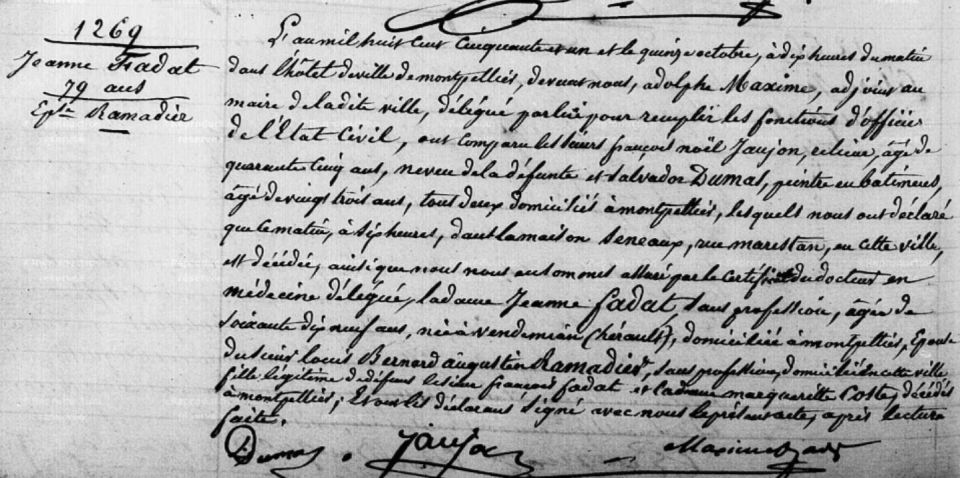 1269
Jeanne Fadat
79 ans
Epse Ramadier
L'an mil huit cent cinquante et un et le quinze octobre, à dix heures du matin
dans l'hôtel de ville de montpellier, devant nous, adolphe Maxime, adjoint au
maire de la dite ville, délégué par lui pour remplir les fonctions d'officier
de l'Etat Civil, ont comparu les sieurs françois noël Jaujon, âgé de
quarante cinq ans, neveu de la défunte et Salvador Dumas, peintre en bâtiments,
âgé de vingt trois ans, tous deux domiciliés à montpellier, lesquels nous ont déclaré
que ce matin, à six heures, dans la maison Seneaux, rue marestan, en cette ville,
est décédée, ainsi que nous nous en sommes assuré par le certificat du docteur en
médecine délégué, la dame Jeanne fadat, sans profession, âgée de
soixante dix neuf ans, née à vendemian (hérault), domiciliée à montpellier, Epouse
du sieur louis Bernard augustin Ramadier, sans profession, domicilié en cette ville
fille légitime de défunts le sieur françois fadat et la dame marguerite Coste, décédés
à montpellier; Et ont les déclarans signé avec nous le présent acte, après lecture
faite.
Dumas Jaujon Maxime